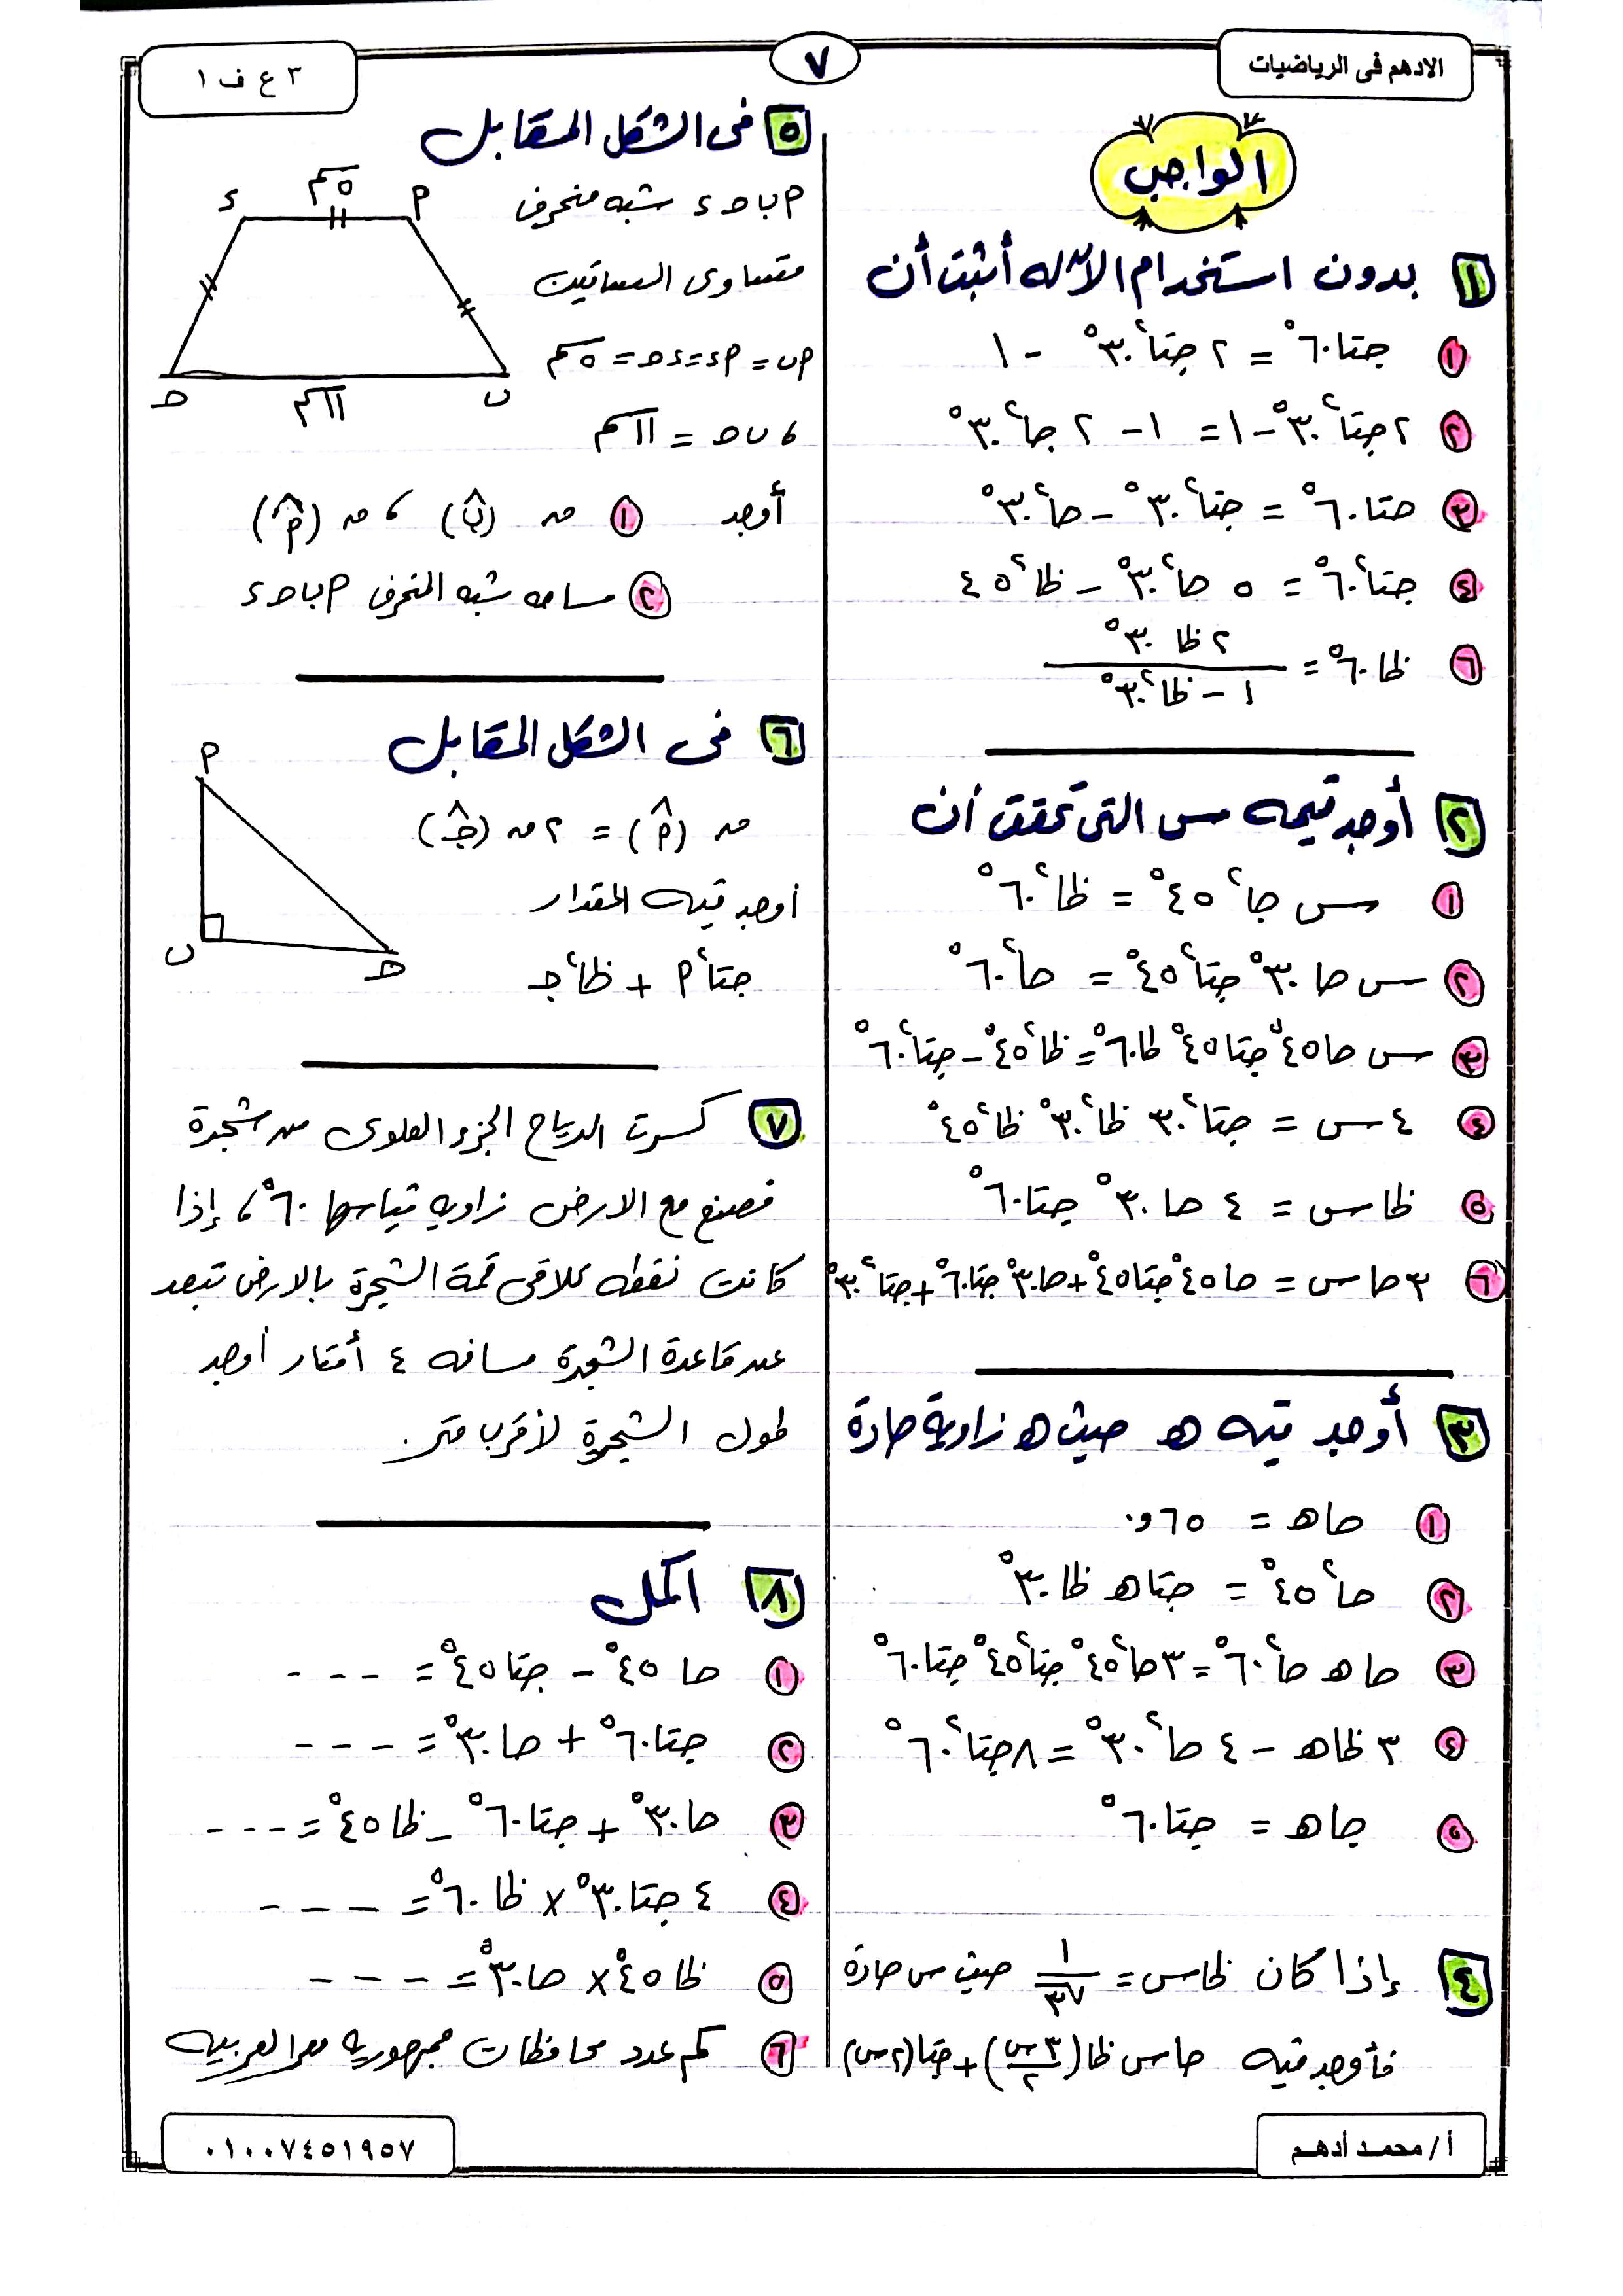 الادهم فى الرياضيات
٧
٣ ع ف ١
الواجب
١ بدون استخدام الآله أثبت أن
١ جتا٦٠° = ٢ جتا²٣٠° - ١
٢ ٢جتا²٣٠° - ١ = ١ - ٢ جا²٣٠°
٣ جتا٦٠° = جتا²٣٠° - جا²٣٠°
٤ جتا²٦٠° = ٥ جا²٣٠° - ظا²٤٥
٦ ظا٦٠° = ٢ ظا ٣٠° / ١ - ظا²٣٠°
٢ أوجد قيمه س التى تحقق أن
١ س جا²٤٥° = ظا²٦٠°
٢ س جا ٣٠° جتا²٤٥° = جا²٦٠°
٣ س جا٤٥° جتا٤٥° ظا٦٠° = ظا²٤٥° - جتا²٦٠°
٤ ٤ س = جتا²٣٠ ظا²٣٠° ظا²٤٥°
٥ ظا س = ٤ جا ٣٠° جتا٦٠°
٦ ٣ جا س = جا ٤٥° جتا٤٥° + جا٣٠° جتا٦٠° + جتا²٣٠°
٣ أوجد قيمه ه حيث ه زاوية حادة
١ جا ه = ٦٥و٠
٢ جا²٤٥° = جتا ه ظا ٣٠°
٣ جا ه جا²٦٠° = ٣ جا²٤٥° جتا²٤٥° جتا٦٠°
٤ ٣ ظا ه - ٤ جا²٣٠° = ٨ جتا²٦٠°
٥ جا ه = جتا٦٠°
٤ إذا كان ظا س = ١/√٣ حيث س حادة
فأوجد قيمه جا س ظا (٣ س/٢) + جتا (٢ س)
٥ فى الشكل المقابل
٢ ب ح ٤ شبه منحرف
متساوى الساقين
٢ب = ٢٤ = ٤ح = ٥سم
، ب ح = ١١سم
أوجد ١ ق (ب̂) ، ق (٢̂)
٢ مساحه شبه المنحرف ٢ ب ح ٤
٤ ٥سم ٢
ح ١١سم ب
٦ فى الشكل المقابل
ق (٢̂) = ٢ ق (ج̂)
اوجد قيمه المقدار
جتا²٢ + ظا²ج
٢
ب ح
٧ كسرت الرياح الجزء العلوى من شجرة
فصنع مع الارض زاويه قياسها ٦٠° ، إذا
كانت نقطه تلاقى قمة الشجرة بالارض تبعد
عن قاعدة الشجرة مسافه ٤ أمتار أوجد
طول الشجرة لأقرب متر.
٨ اكمل
١ جا ٤٥° - جتا٤٥° = - - -
٢ جتا٦٠° + جا٣٠° = - - -
٣ جا٣٠° + جتا٦٠° - ظا٤٥° = - - -
٤ ٤ جتا٣٠° × ظا ٦٠° = - - -
٥ ظا ٤٥° × جا٣٠° = - - -
٦ كم عدد محافظات جمهوريه مصر العربيه
أ / محمد أدهم
٠١٠٠٧٤٥١٩٥٧